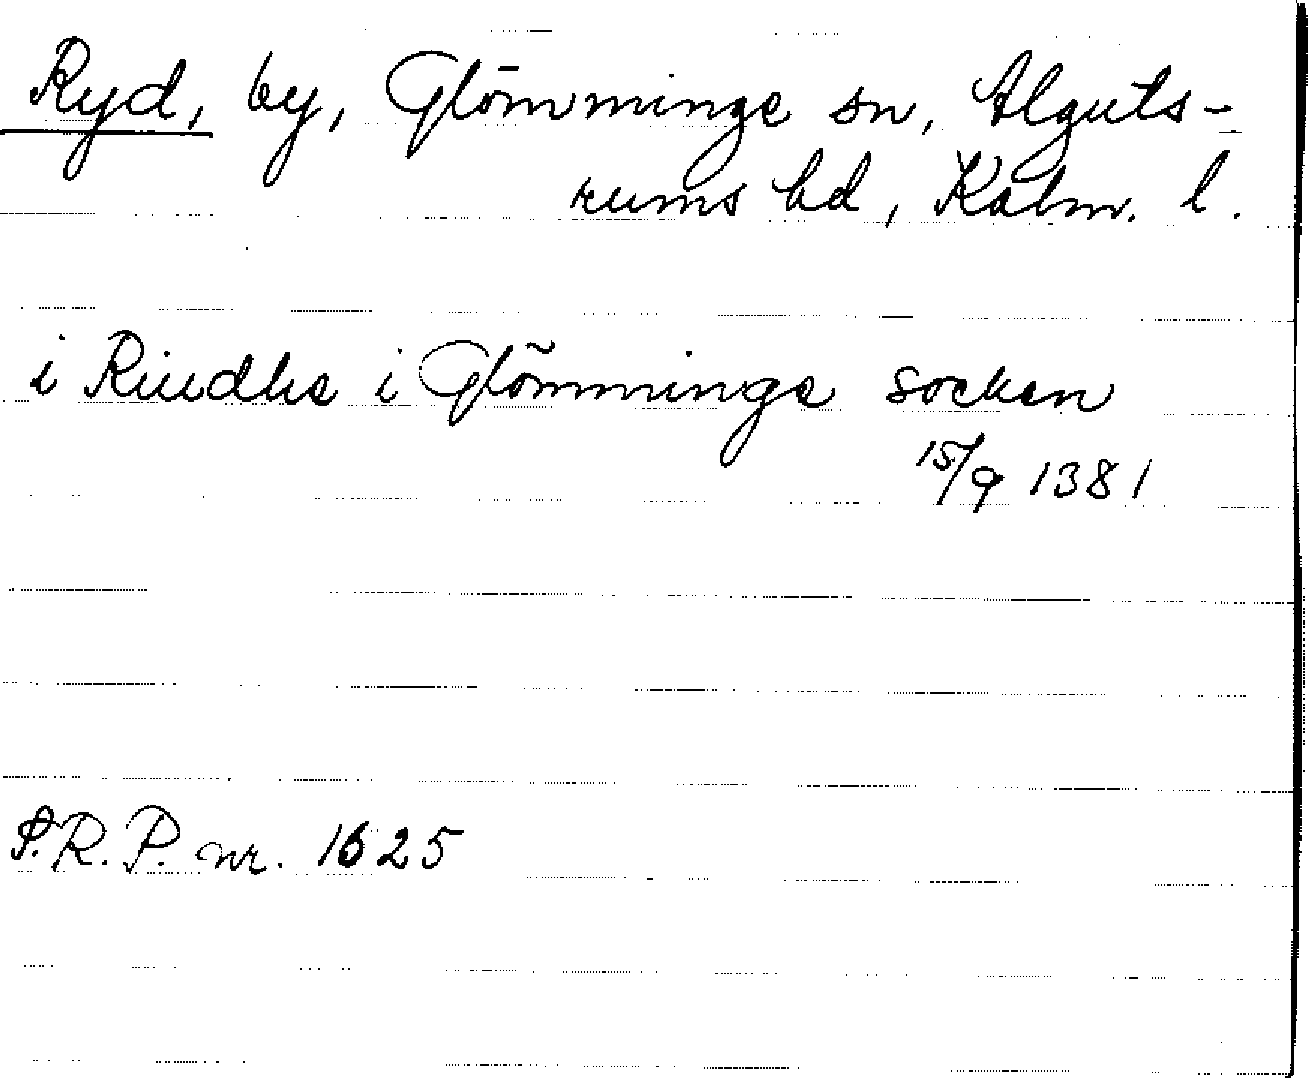 Ryd, by, Glömminge sn, Alguts-
rums hd, Kalm. l.
i Riudhe i Glömminge socken
15/9 1381
S.R.P. nr. 1625